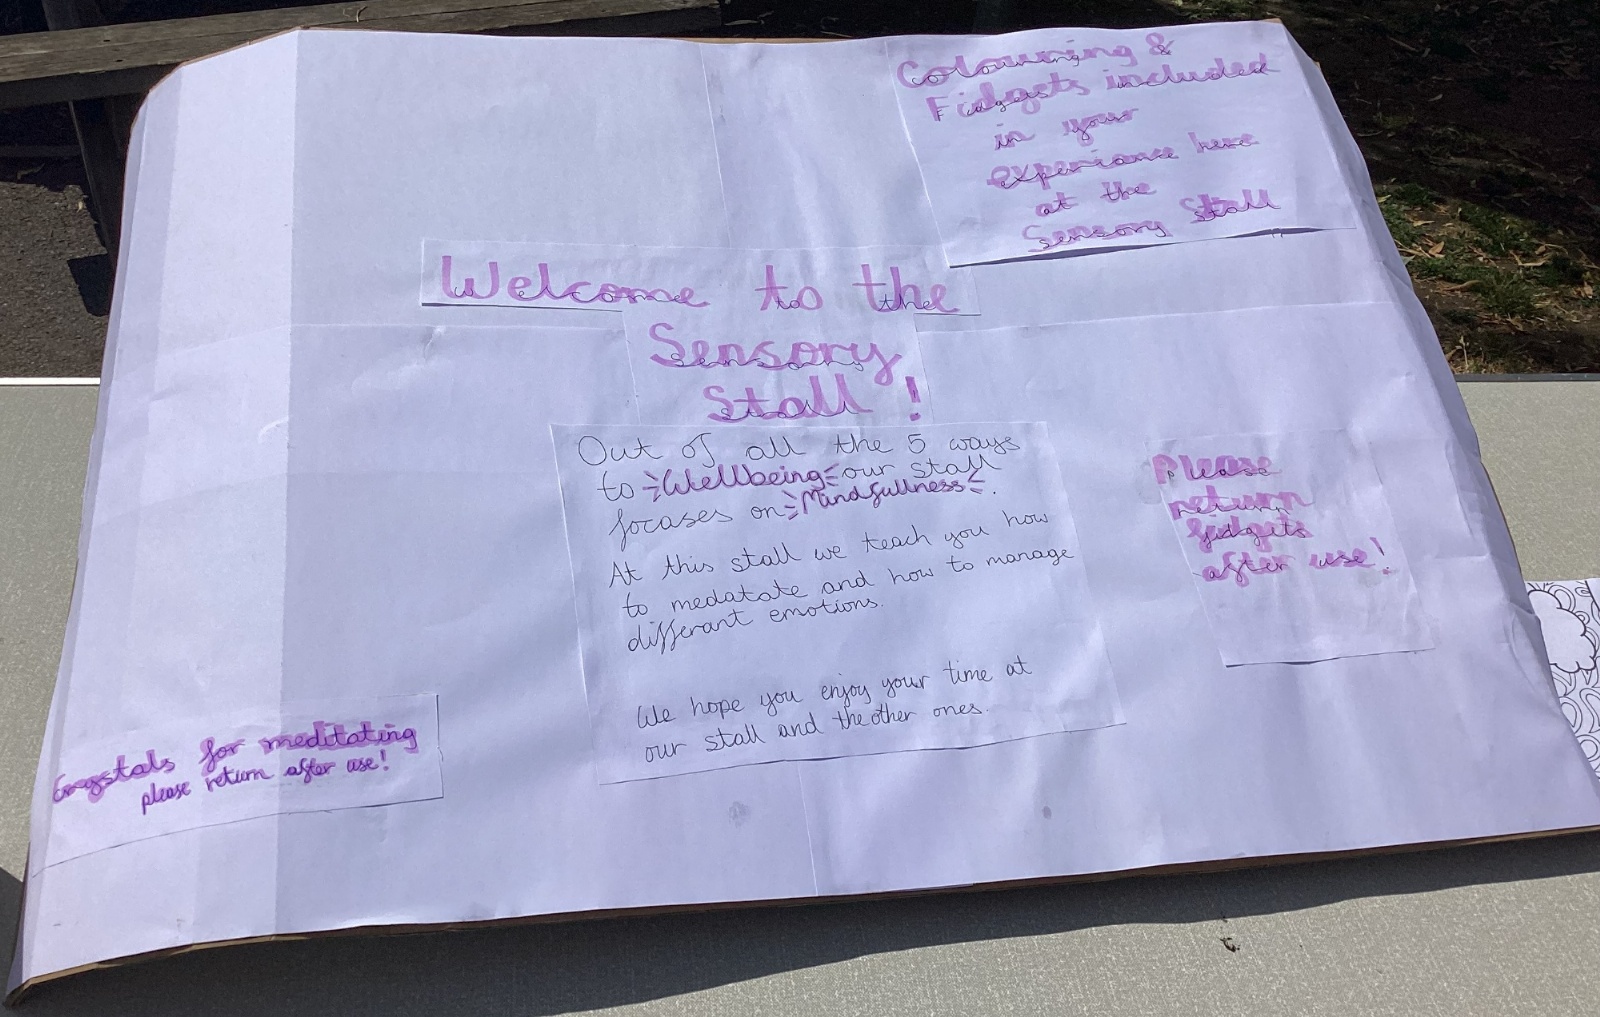 Colouring &
Fidgets included
in your
experiance here
at the
Sensory Stall
Welcome to the
Sensory
Stall!
Out of all the 5 ways
to Wellbeing our stall
focases on Mindfullness.
At this stall we teach you how
to medatate and how to manage
differant emotions.
We hope you enjoy your time at
our stall and the other ones.
Please
return
fidgets
after use!
Crystals for meditating
please return after use!